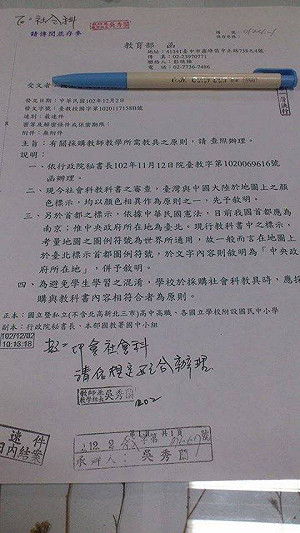 已、社會科
請傳閱並存參
教育部 函
地址：41341臺中市霧峰區中正路738之4號
傳真：02-23970771
聯絡人：彭
電話：02-7736-7486
受文者：
發文日期：中華民國102年12月2日
發文字號：臺教授國字第1020117158B號
速別：最速件
密等及解密條件或保密期限：
附件：無附件
主旨：有關採購教師教學所需教具之原則，請 查照辦理。
說明：
一、依行政院秘書長102年11月12日院臺教字第1020069616號
函辦理。
二、現今社會科教科書之審查，臺灣與中國大陸於地圖上之顏
色標示，均以顏色相異作為原則之一，先予敘明。
三、另於首都之標示，依據中華民國憲法，目前我國首都應為
南京；惟中央政府所在地為臺北。現行教科書中之標示，
考量地圖之圖例符號為世界所通用，故一般而言在地圖上
於臺北標示首都圖例符號，於文字內容則敘明為「中央政
府所在地」，併予敘明。
四、為避免學生學習之混淆，學校於採購社會科教具時，應採
購與教科書內容相符合者為原則。
正本：國立暨私立(不含北高新北三市)高中高職、各國立大學校院附設國民中小學
副本：行政院秘書長、本部國教署國中小組
102/12/02
10:15:18
影印會社會科
請依規定配合辦理
教師兼
教學組長
吳秀
1202
速件
日內結案
第1頁 共1頁
承辦人：吳秀